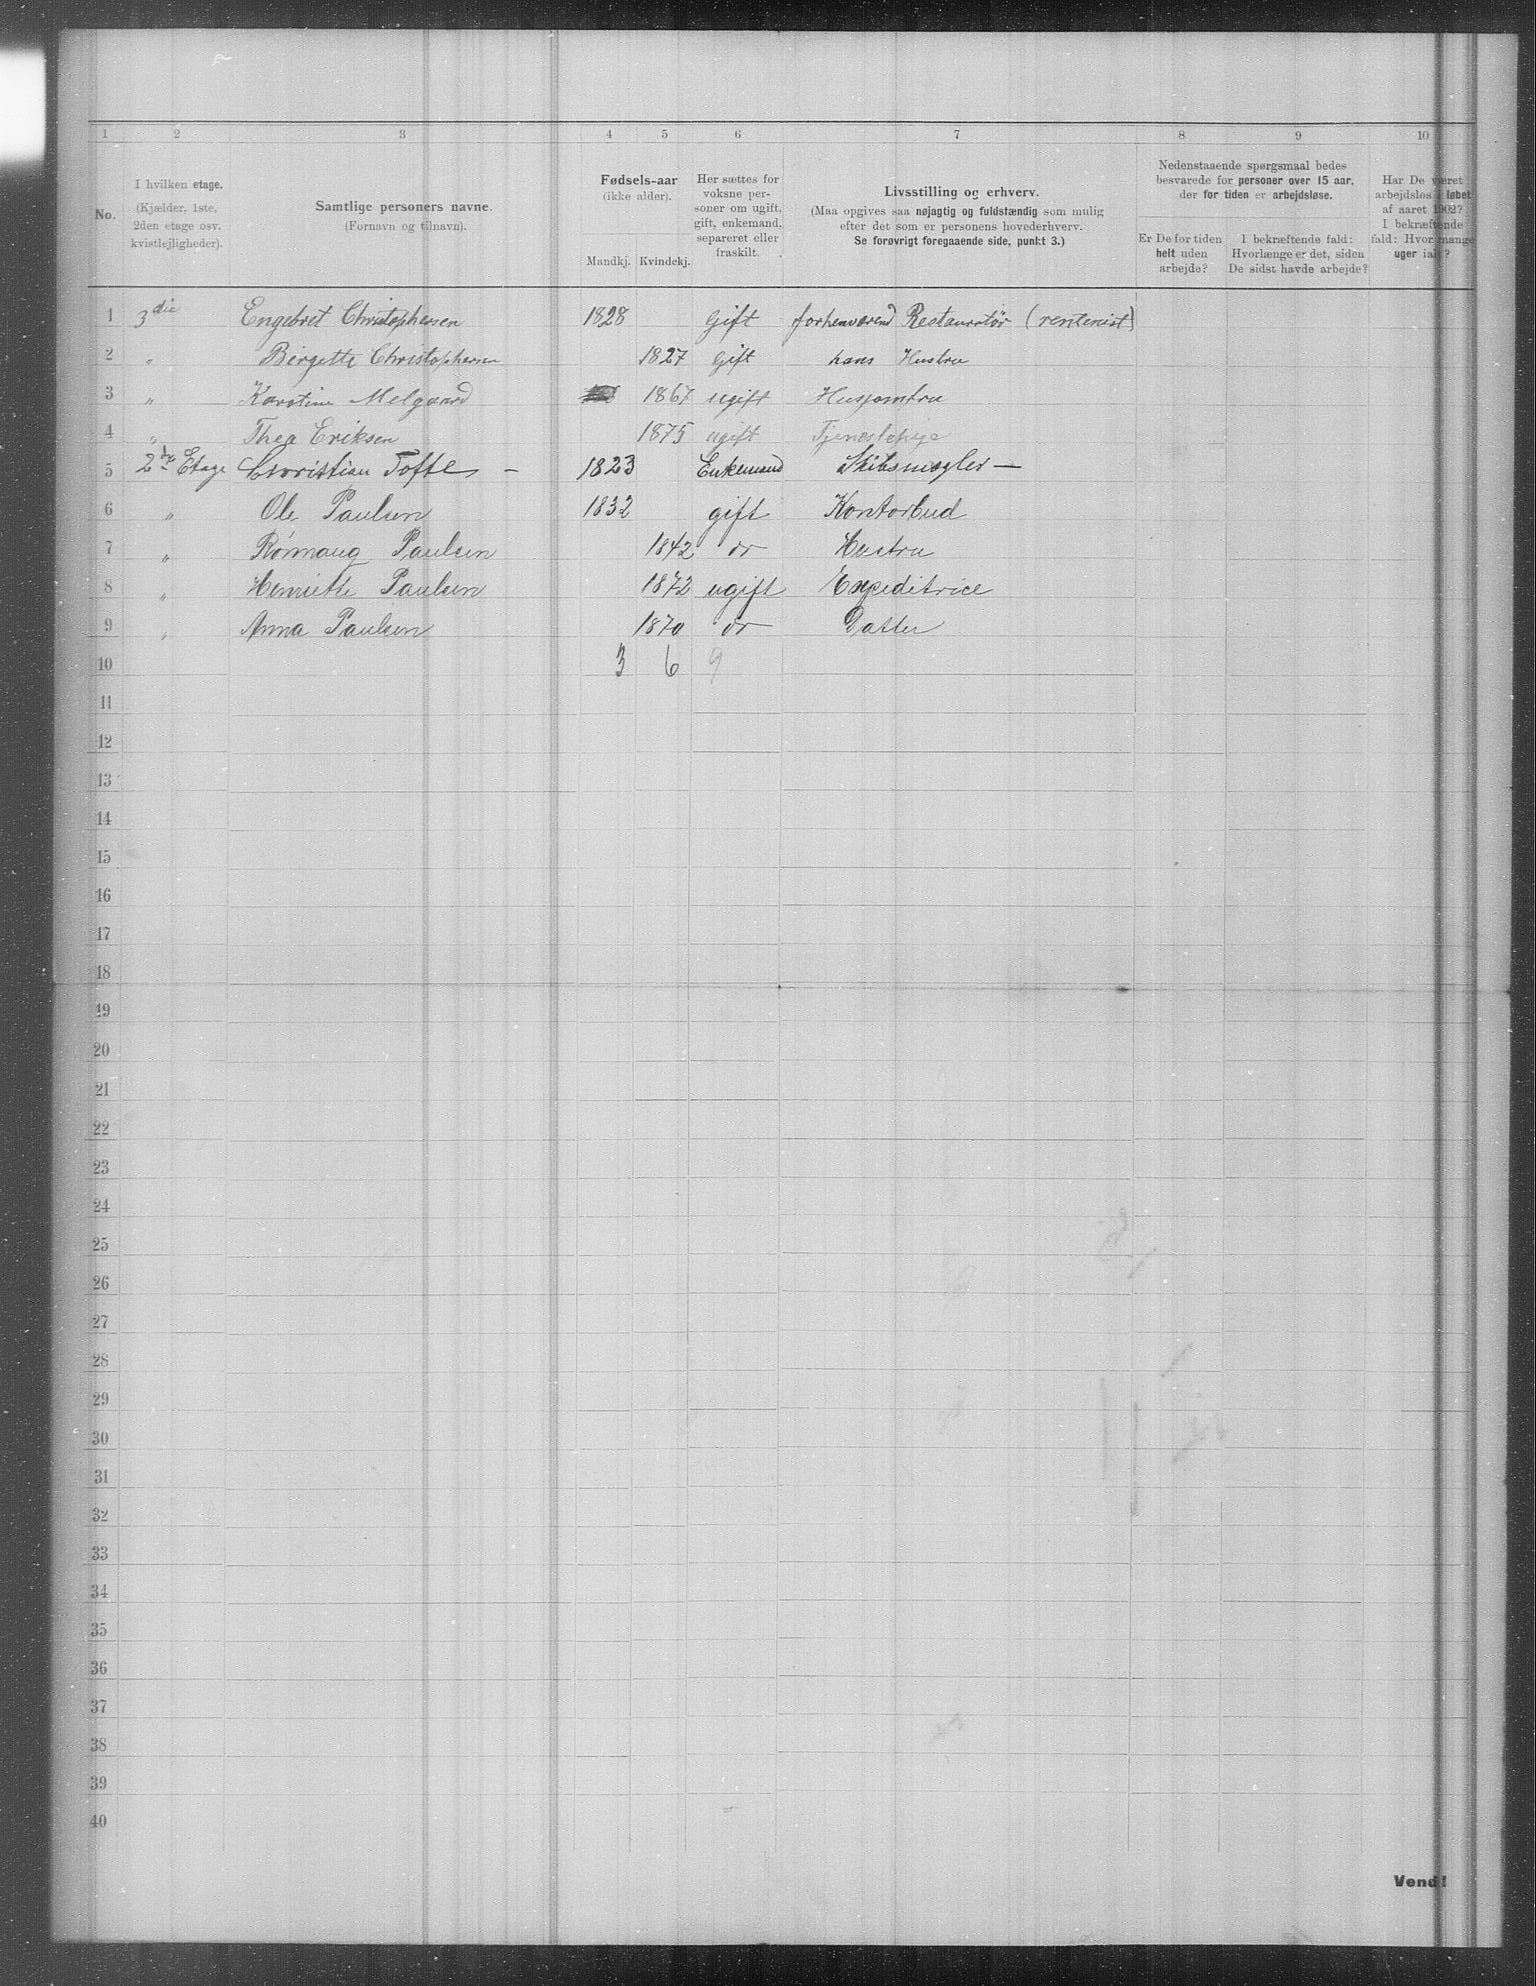 1 2 3 4 5 6 7 8 9 10
No.
I hvilken etage.
(Kjælder, 1ste,
2den etage osv.
kvistlejligheder).
Samtlige personers navne.
(Fornavn og tilnavn).
Fødsels-aar
(ikke alder).
Mandkj. Kvindekj.
Her sættes for
voksne per-
soner om ugift,
gift, enkemand,
separeret eller
fraskilt.
Livsstilling og erhverv.
(Maa opgives saa nøjagtig og fuldstændig som mulig
efter det som er personens hovederhverv.
Se forøvrigt foregaaende side, punkt 3.)
Nedenstaaende spørgsmaal bedes
besvarede for personer over 15 aar,
der for tiden er arbejdsløse.
Er De for tiden
helt uden
arbejde?
I bekræftende fald:
Hvorlænge er det, siden
De sidst havde arbejde?
Har De været
arbejdsløs i løbet
af aaret 1902?
I bekræftende
fald: Hvor mange
uger ialt?
1 3die Engebret Christophersen 1828 Gift forhenværend Restauratør (rentenist)
2 " Birgitte Christophersen 1827 Gift hans Hustru
3 " Karstine Melgaard 1867 ugift Husjomfru
4 " Thea Eriksen 1875 ugift Tjenestepige
5 2den Etage Christian Tofte - 1823 Enkemand Skibsmægler —
6 " Ole Paulsen 1832 gift Kontorbud
7 " Rönnaug Paulsen 1842 do Hustru
8 " Henriette Paulsen 1872 ugift Expeditrice
9 " Anna Paulsen 1870 do Datter
10 3 6 9
11
12
13
14
15
16
17
18
19
20
21
22
23
24
25
26
27
28
29
30
31
32
33
34
35
36
37
38
39
40
Vend!